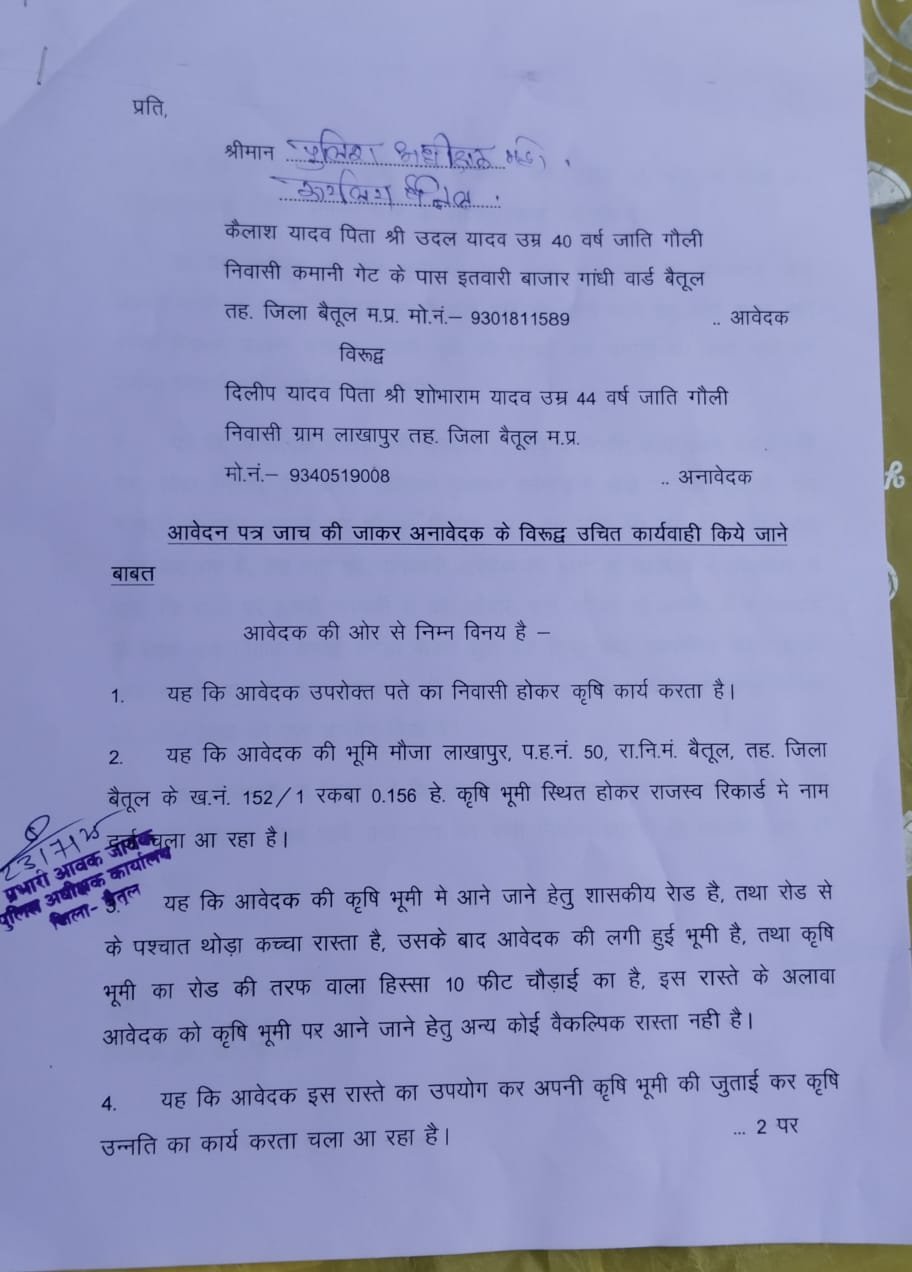 प्रति,
श्रीमान पुलिस अधीक्षक महो.
कार्यालय बैतूल
कैलाश यादव पिता श्री उदल यादव उम्र 40 वर्ष जाति गौली
निवासी कमानी गेट के पास इतवारी बाजार गांधी वार्ड बैतूल
तह. जिला बैतूल म.प्र. मो.नं.– 9301811589 .. आवेदक
विरूद्व
दिलीप यादव पिता श्री शोभाराम यादव उम्र 44 वर्ष जाति गौली
निवासी ग्राम लाखापुर तह. जिला बैतूल म.प्र.
मो.नं.– 9340519008 .. अनावेदक
आवेदन पत्र जाच की जाकर अनावेदक के विरूद्व उचित कार्यवाही किये जाने
बाबत
आवेदक की ओर से निम्न विनय है –
1. यह कि आवेदक उपरोक्त पते का निवासी होकर कृषि कार्य करता है।
2. यह कि आवेदक की भूमि मौजा लाखापुर, प.ह.नं. 50, रा.नि.मं. बैतूल, तह. जिला
बैतूल के ख.नं. 152/1 रकबा 0.156 हे. कृषि भूमी स्थित होकर राजस्व रिकार्ड मे नाम
दर्ज चला आ रहा है।
23/7/25
प्रभारी आवक जावक
पुलिस अधीक्षक कार्यालय
जिला- बैतूल
3. यह कि आवेदक की कृषि भूमी मे आने जाने हेतु शासकीय रोड है, तथा रोड से
के पश्चात थोड़ा कच्चा रास्ता है, उसके बाद आवेदक की लगी हुई भूमी है, तथा कृषि
भूमी का रोड की तरफ वाला हिस्सा 10 फीट चौड़ाई का है, इस रास्ते के अलावा
आवेदक को कृषि भूमी पर आने जाने हेतु अन्य कोई वैकल्पिक रास्ता नही है।
4. यह कि आवेदक इस रास्ते का उपयोग कर अपनी कृषि भूमी की जुताई कर कृषि
उन्नति का कार्य करता चला आ रहा है।
... 2 पर